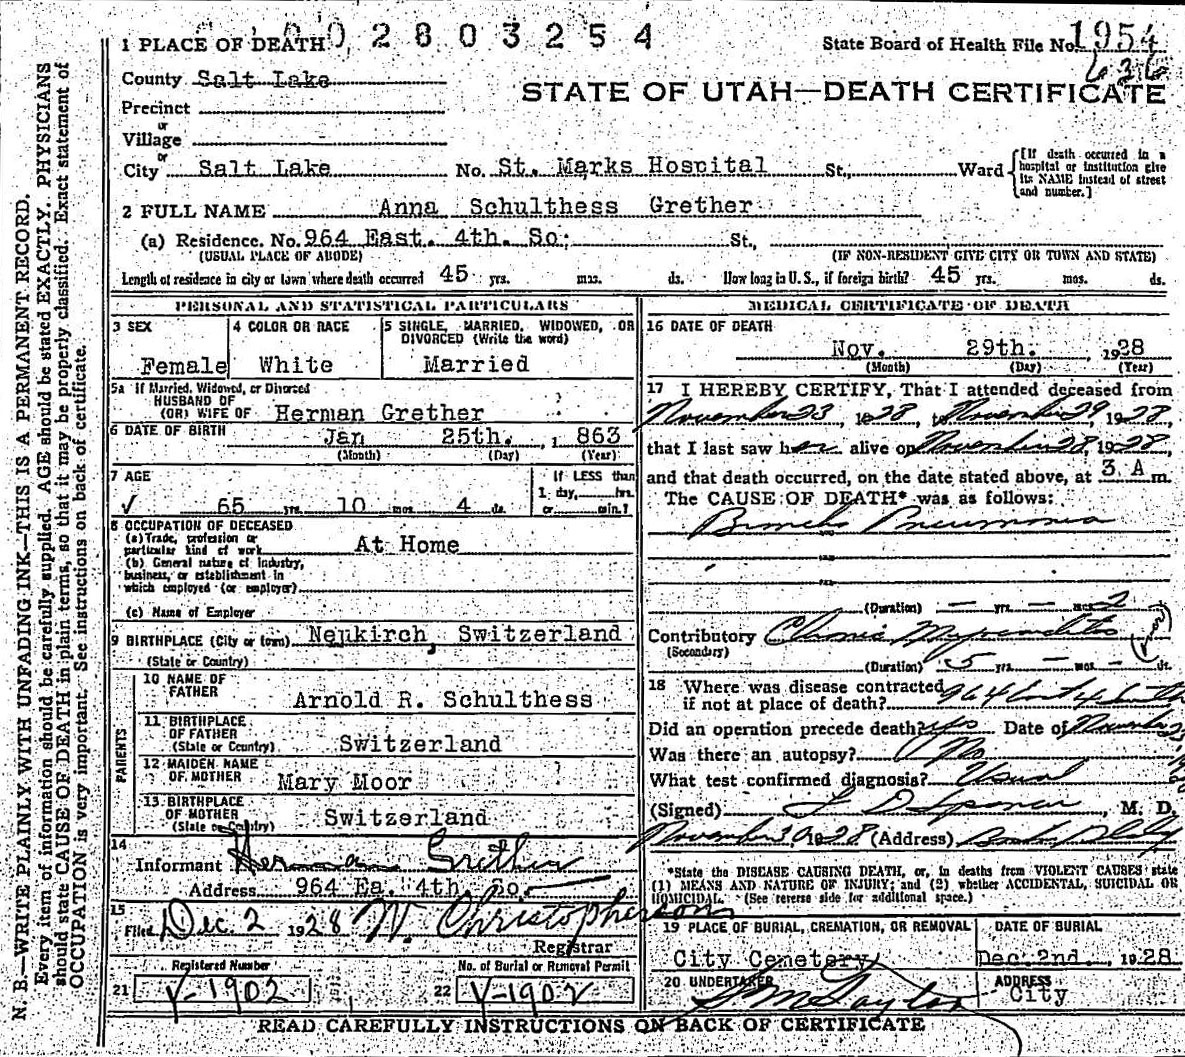 002803254
1 PLACE OF DEATH
State Board of Health File No. 1954
626
County Salt Lake
STATE OF UTAH—DEATH CERTIFICATE
Precinct
or
Village
or
City Salt Lake No. St. Marks Hospital St., Ward [If death occurred in a hospital or institution give its NAME instead of street and number.]
2 FULL NAME Anna Schulthess Grether
(a) Residence. No. 964 East. 4th. So. St.,
(USUAL PLACE OF ABODE) (IF NON-RESIDENT GIVE CITY OR TOWN AND STATE)
Length of residence in city or town where death occurred 45 yrs. mos. ds. How long in U.S., if foreign birth? 45 yrs. mos. ds.
PERSONAL AND STATISTICAL PARTICULARS
3 SEX
Female
4 COLOR OR RACE
White
5 SINGLE, MARRIED, WIDOWED, OR
DIVORCED (Write the word)
Married
5a If Married, Widowed, or Divorced
HUSBAND OF
(OR) WIFE OF Herman Grether
6 DATE OF BIRTH Jan 25th. , 1 863
(Month) (Day) (Year)
7 AGE
65 yrs. 10 mos. 4 ds.
If LESS than
1 day, hrs.
or min.?
8 OCCUPATION OF DECEASED
(a) Trade, profession or
particular kind of work At Home
(b) General nature of industry,
business, or establishment in
which employed (or employer)
(c) Name of Employer
9 BIRTHPLACE (City or town) Neukirch, Switzerland
(State or Country)
PARENTS
10 NAME OF
FATHER Arnold R. Schulthess
11 BIRTHPLACE
OF FATHER
(State or Country) Switzerland
12 MAIDEN NAME
OF MOTHER Mary Moor
13 BIRTHPLACE
OF MOTHER
(State or Country) Switzerland
14
Informant Herman Grether
Address 964 Ea. 4th. So.
15
Filed Dec. 2 1928 W. Christophersons
Registrar
Registered Number
21 V-1902
No. of Burial or Removal Permit
22 V-1902
MEDICAL CERTIFICATE OF DEATH
16 DATE OF DEATH
Nov. 29th. , 1928
(Month) (Day) (Year)
17 I HEREBY CERTIFY, That I attended deceased from
November 23, 1928, to November 29, 1928,
that I last saw her alive on November 28, 1928,
and that death occurred, on the date stated above, at 3 A m.
The CAUSE OF DEATH* was as follows:
Broncho Pneumonia
(Duration) — yrs. — mos. 2
Contributory Chronic
(Secondary)
(Duration) 5 yrs. — mos. — ds.
18 Where was disease contracted
if not at place of death? 964 East 4 South
Did an operation precede death? yes Date of November 23
Was there an autopsy? No
What test confirmed diagnosis? Usual
(Signed) , M. D.
November 30, 1928 (Address)
*State the DISEASE CAUSING DEATH, or, in deaths from VIOLENT CAUSES state
(1) MEANS AND NATURE OF INJURY; and (2) whether ACCIDENTAL, SUICIDAL OR
HOMICIDAL. (See reverse side for additional space.)
19 PLACE OF BURIAL, CREMATION, OR REMOVAL
City Cemetery
DATE OF BURIAL
Dec. 2nd. , 1928
20 UNDERTAKER
S M Taylor
ADDRESS
City
READ CAREFULLY INSTRUCTIONS ON BACK OF CERTIFICATE
N. B.—WRITE PLAINLY, WITH UNFADING INK—THIS IS A PERMANENT RECORD.
Every item of information should be carefully supplied. AGE should be stated EXACTLY. PHYSICIANS
should state CAUSE OF DEATH in plain terms, so that it may be properly classified. Exact statement of
OCCUPATION is very important. See instructions on back of certificate.